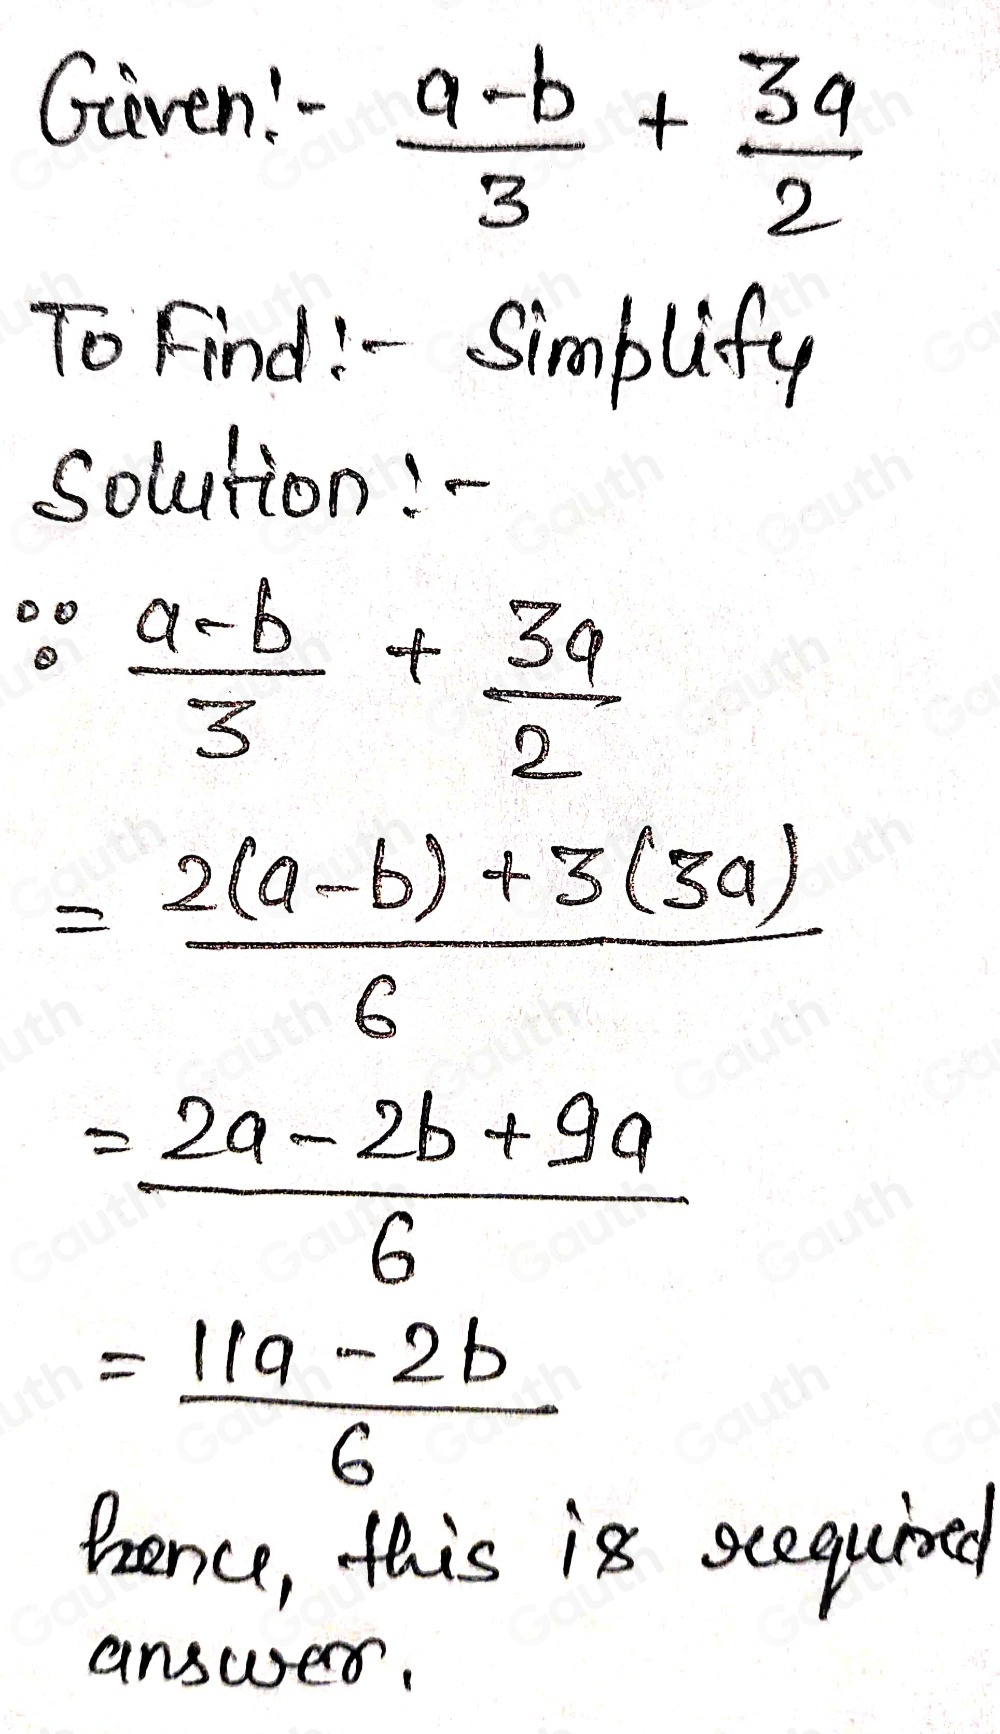 Given:- a-b/3 + 3a/2
To Find:- Simplify
Solution:-
∵ a-b/3 + 3a/2
= 2(a-b)+3(3a)/6
= 2a-2b+9a/6
= 11a-2b/6
hence, this is required
answer.